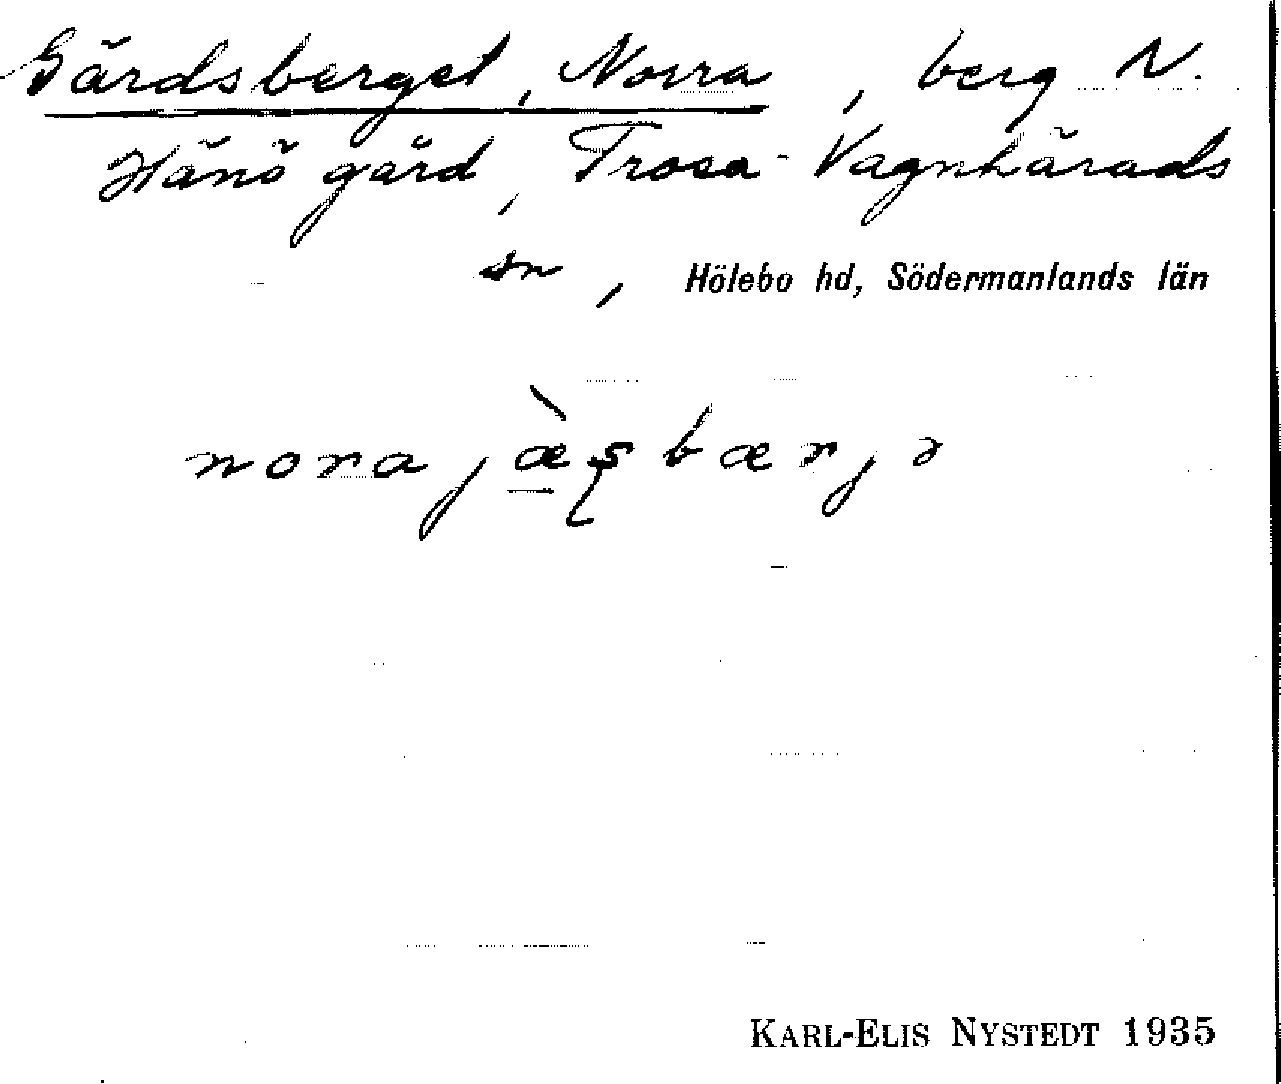 Gärdsberget, Norra, berg N.
Hånö gård, Trosa-Vagnhärads
sn, Hölebo hd, Södermanlands län
KARL-ELIS NYSTEDT 1935